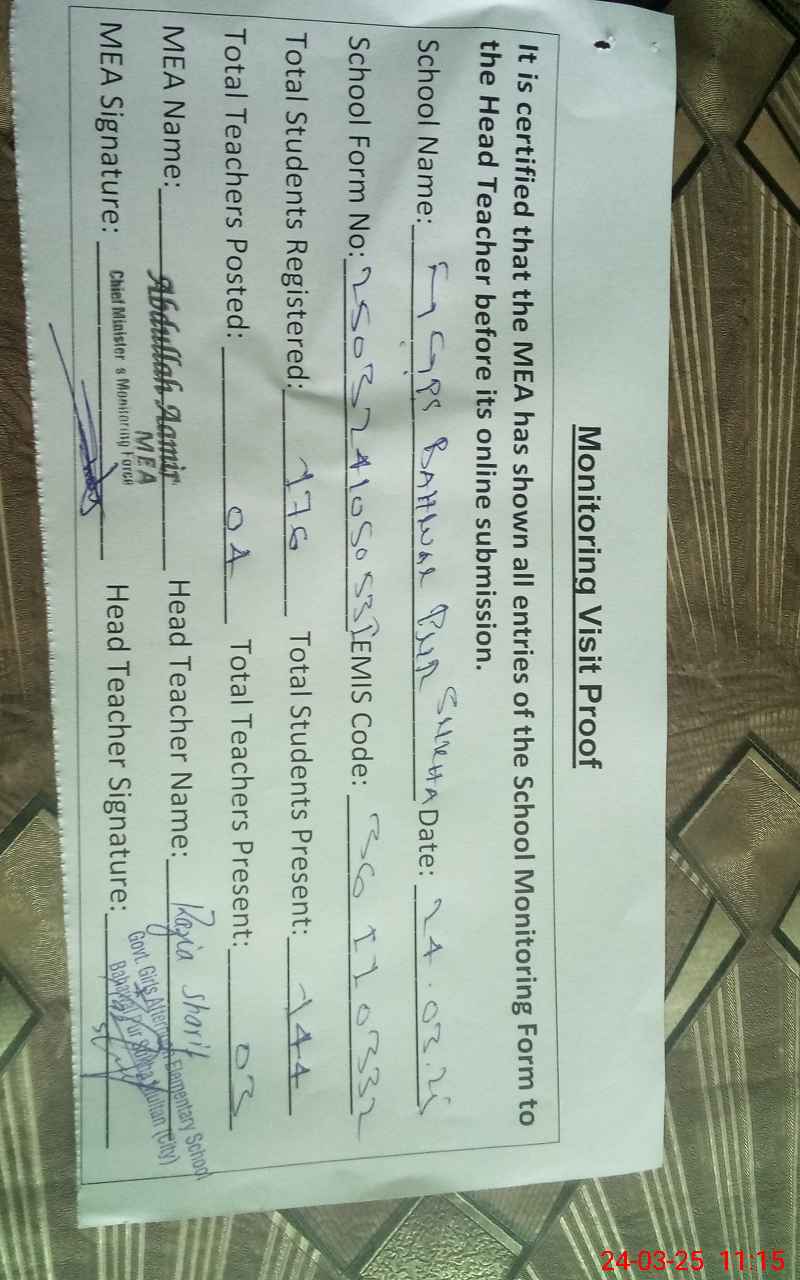 Monitoring Visit Proof
It is certified that the MEA has shown all entries of the School Monitoring Form to
the Head Teacher before its online submission.
School Name: GGPS BAHWAL PUR SUKHA Date: 24.03.25
School Form No: EMIS Code: 36110332
Total Students Registered: 176 Total Students Present: 144
Total Teachers Posted: 04 Total Teachers Present: 03
MEA Name: Abdullah Aamir Head Teacher Name: Razia Sharif
MEA
Chief Minister s Monitoring Force
MEA Signature: Head Teacher Signature:
Govt. Girls Elementary School
Pur Multan (City)
24-03-25 11:15